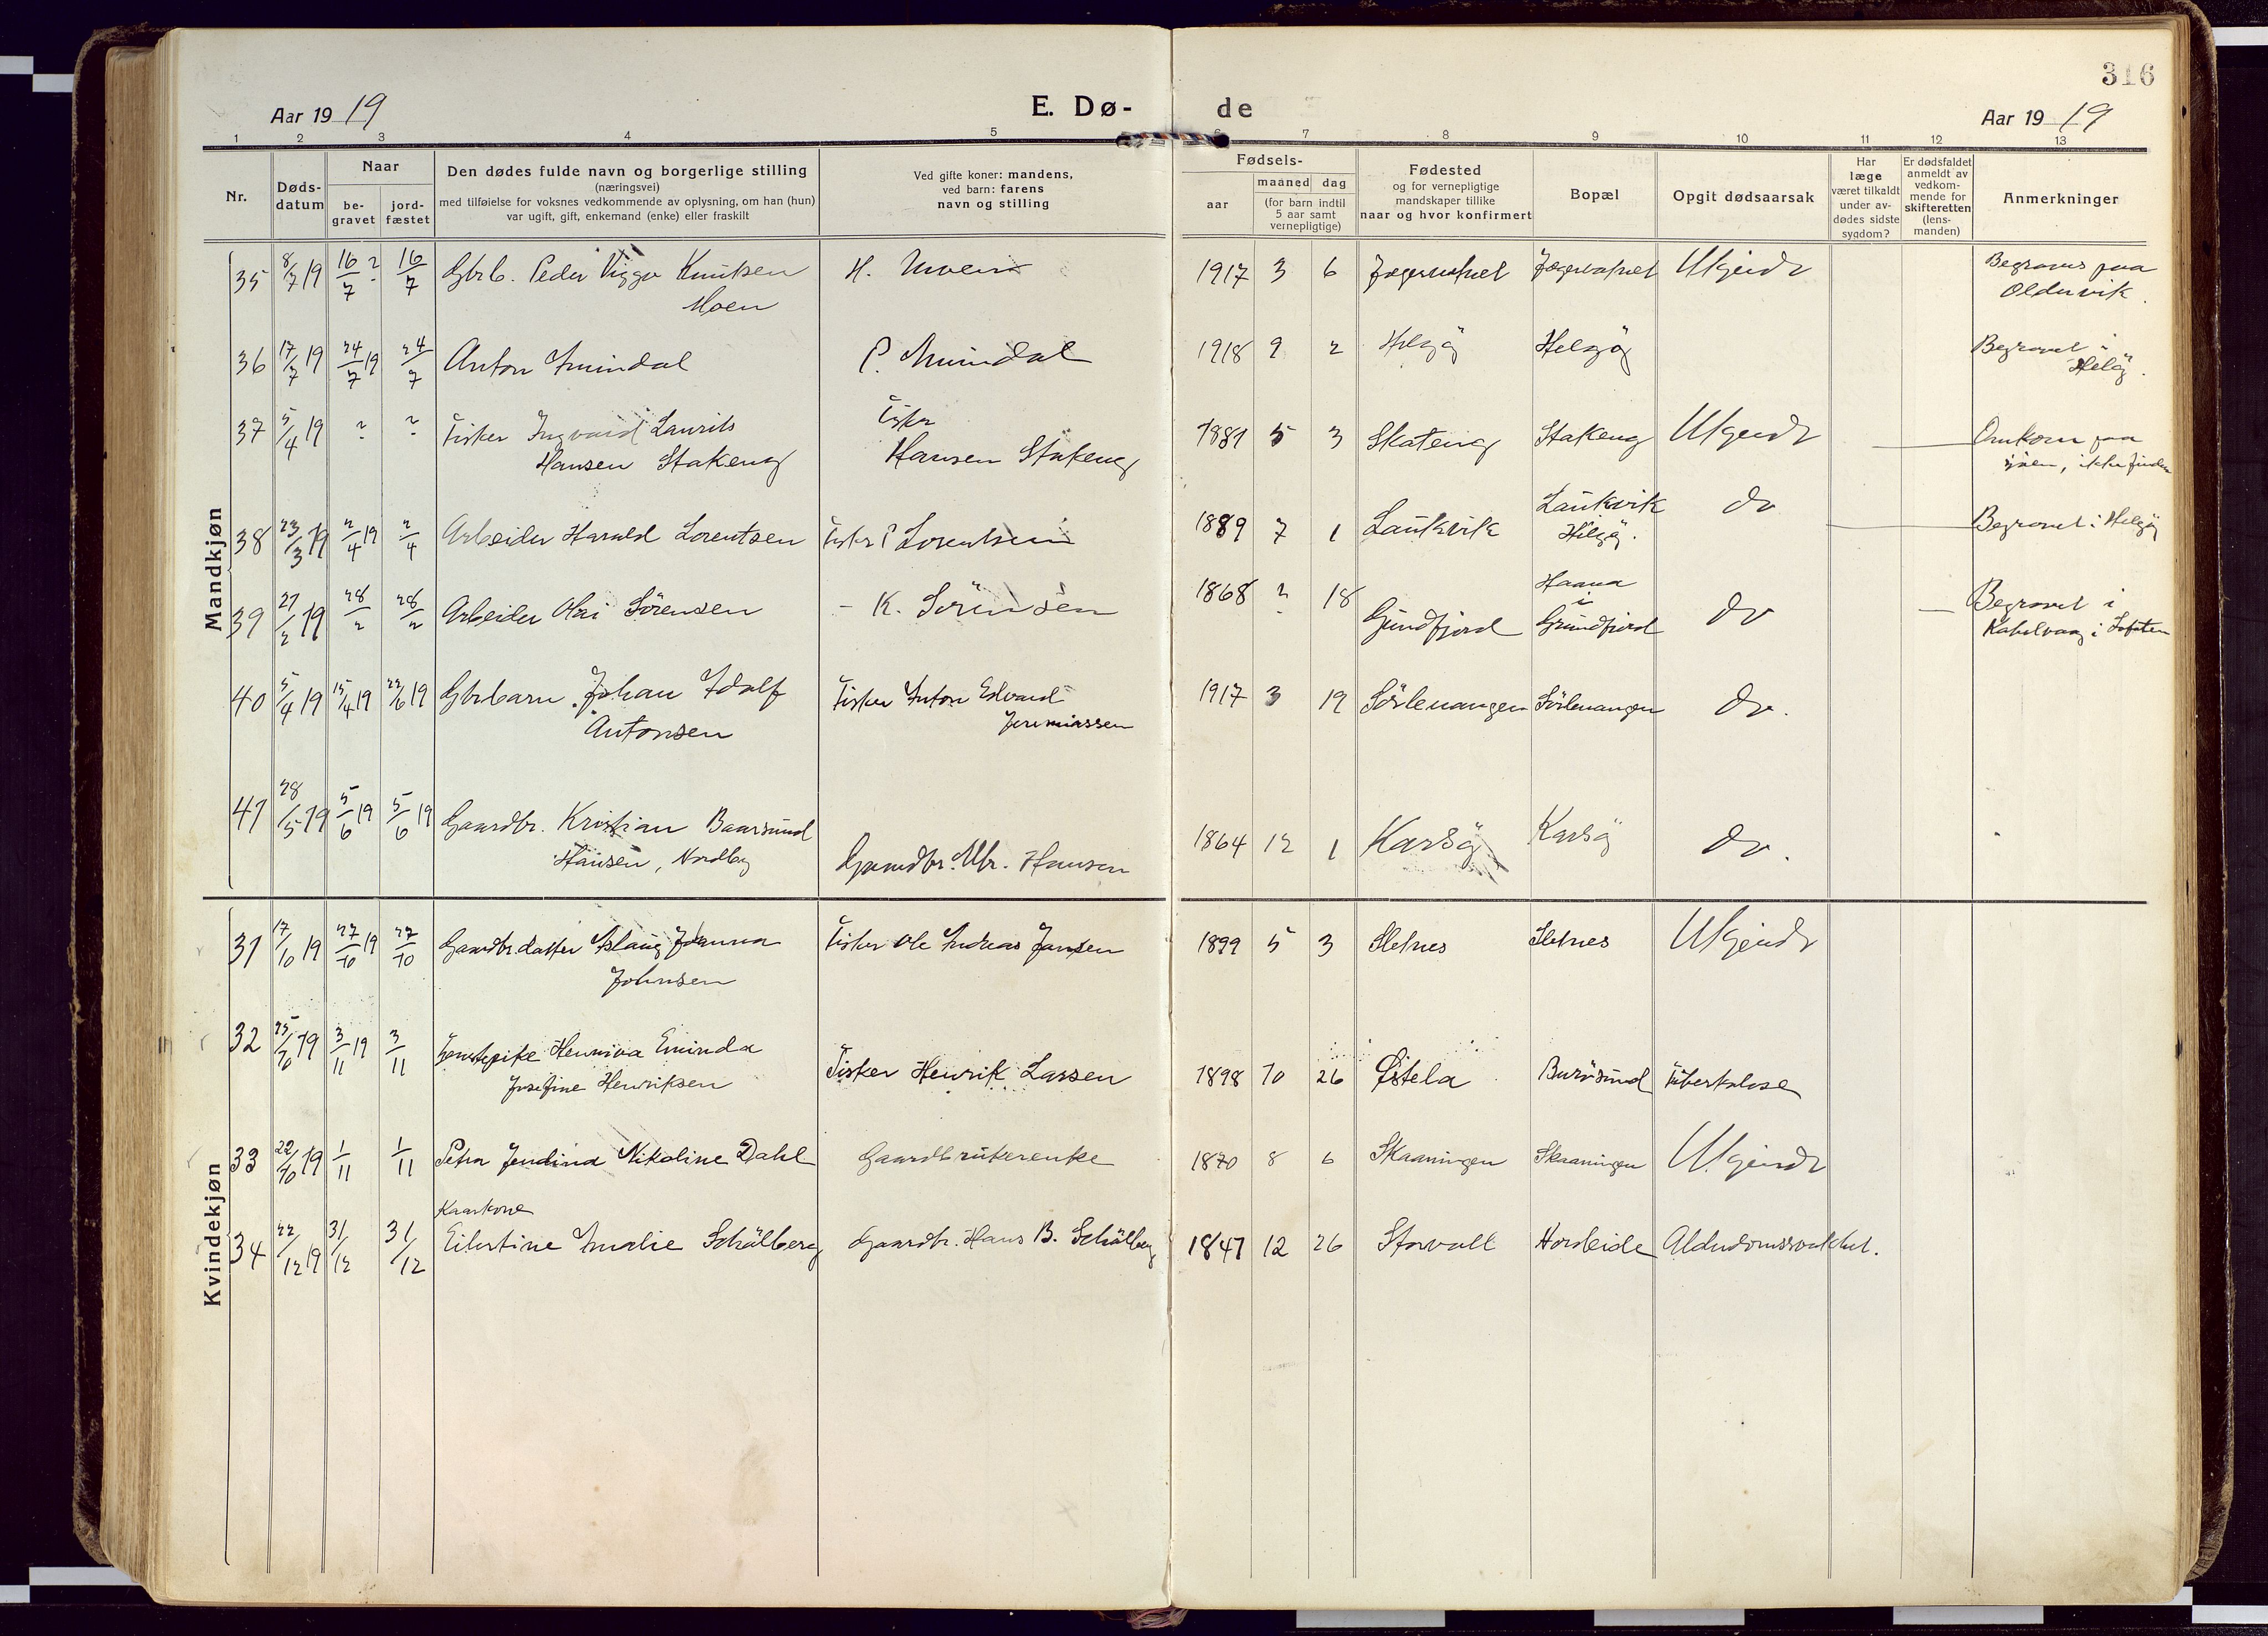 316
Aar 1919
E. Dø-
de
Aar 1919
1 2 3 4 5 6 7 8 9 10 11 12 13
Nr.
Døds-
datum
Naar
be-
gravet
jord-
fæstet
Den dødes fulde navn og borgerlige stilling
(næringsvei)
med tilføielse for voksnes vedkommende av oplysning, om han (hun)
var ugift, gift, enkemand (enke) eller fraskilt
Ved gifte koner: mandens,
ved barn: farens
navn og stilling
Fødsels-
aar
maaned dag
(for barn indtil
5 aar samt
vernepligtige)
Fødested
og for vernepligtige
mandskaper tillike
naar og hvor konfirmert
Bopæl
Opgit dødsaarsak
Har
læge
været tilkaldt
under av-
dødes sidste
sygdom?
Er dødsfaldet
anmeldt av
vedkom-
mende for
skifteretten
(lens-
manden)
Anmerkninger
Mandkjøn
35 8/7 19 16/7 ? 16/7 Gbrb. Peder Viggo Knutsen
Moen
H. Moen 1917 3 6 Jægervatnet Jægervatnet Ukjendt
Begraves paa
Oldervik.
36 17/7 19 24/7 19 24/7 Anton Amindal P. Amindal 1918 9 2 Helgöy Helgöy
Begravet i
Helgöy.
37 5/4 19 ? ? Fisker Ingvard Laurits
Hansen Stakeng
Fisker
Hansen Stakeng 1881 5 3 Skateng Stakeng Ukjendt
Omkom paa
sjøen, ikke funden
38 23/3 19 2/4 19 2/4 Arbeider Harald Lorentsen Fisker P Lorentsen 1889 7 1 Laukvik
Laukvik
Helgöy.
do
Begravet i Helgöy
39 27/2 19 28/2 28/2 Arbeider Olai Sörensen - K. Sörensen 1868 2 18 Grundfjord
Haana
i
Grundfjord
do
Begravet i
Kabelvaag i Lofoten
40 5/4 19 15/4 19 22/6 19 Gbrbarn Johan Adolf
Antonsen
Fisker Anton Edvard
Jeremiassen
1917 3 19 Sörlenangen Sörlenangen do.
41 28/5 19 5/6 19 5/6 19 Gaardbr. Kristian Baarsund
Hansen, Nordby
Gaardbr. Mr. Hansen 1864 12 1 Karlsöy Karlsöy do.
Kvindekjøn
31 17/10 19 27/10 19 27/10 Gaardbr.datter Aslaug Johanna
Johnsen
Fisker Ole Andreas Jansen 1899 5 3 Sletnes Sletnes Ukjendt
32 25/10 19 3/11 19 3/11 Tjenestepike Hennina Eminda
Josefine Henriksen
Fisker Henrik Larsen 1898 10 26 Østela Burösund Tuberkulose
33 22/10 19 1/11 1/11 Petra Jendina Nikoline Dahl Gaardbrukerenke 1870 8 6 Skaaningen Skaaningen Ukjendt
Kaarkone
34 22/12 19 31/12 31/12 Eilertine Amalie Schölberg Gaardbr. Hans B. Schölberg 1847 12 26 Storvoll Nordeide Alderdomssvakhet.